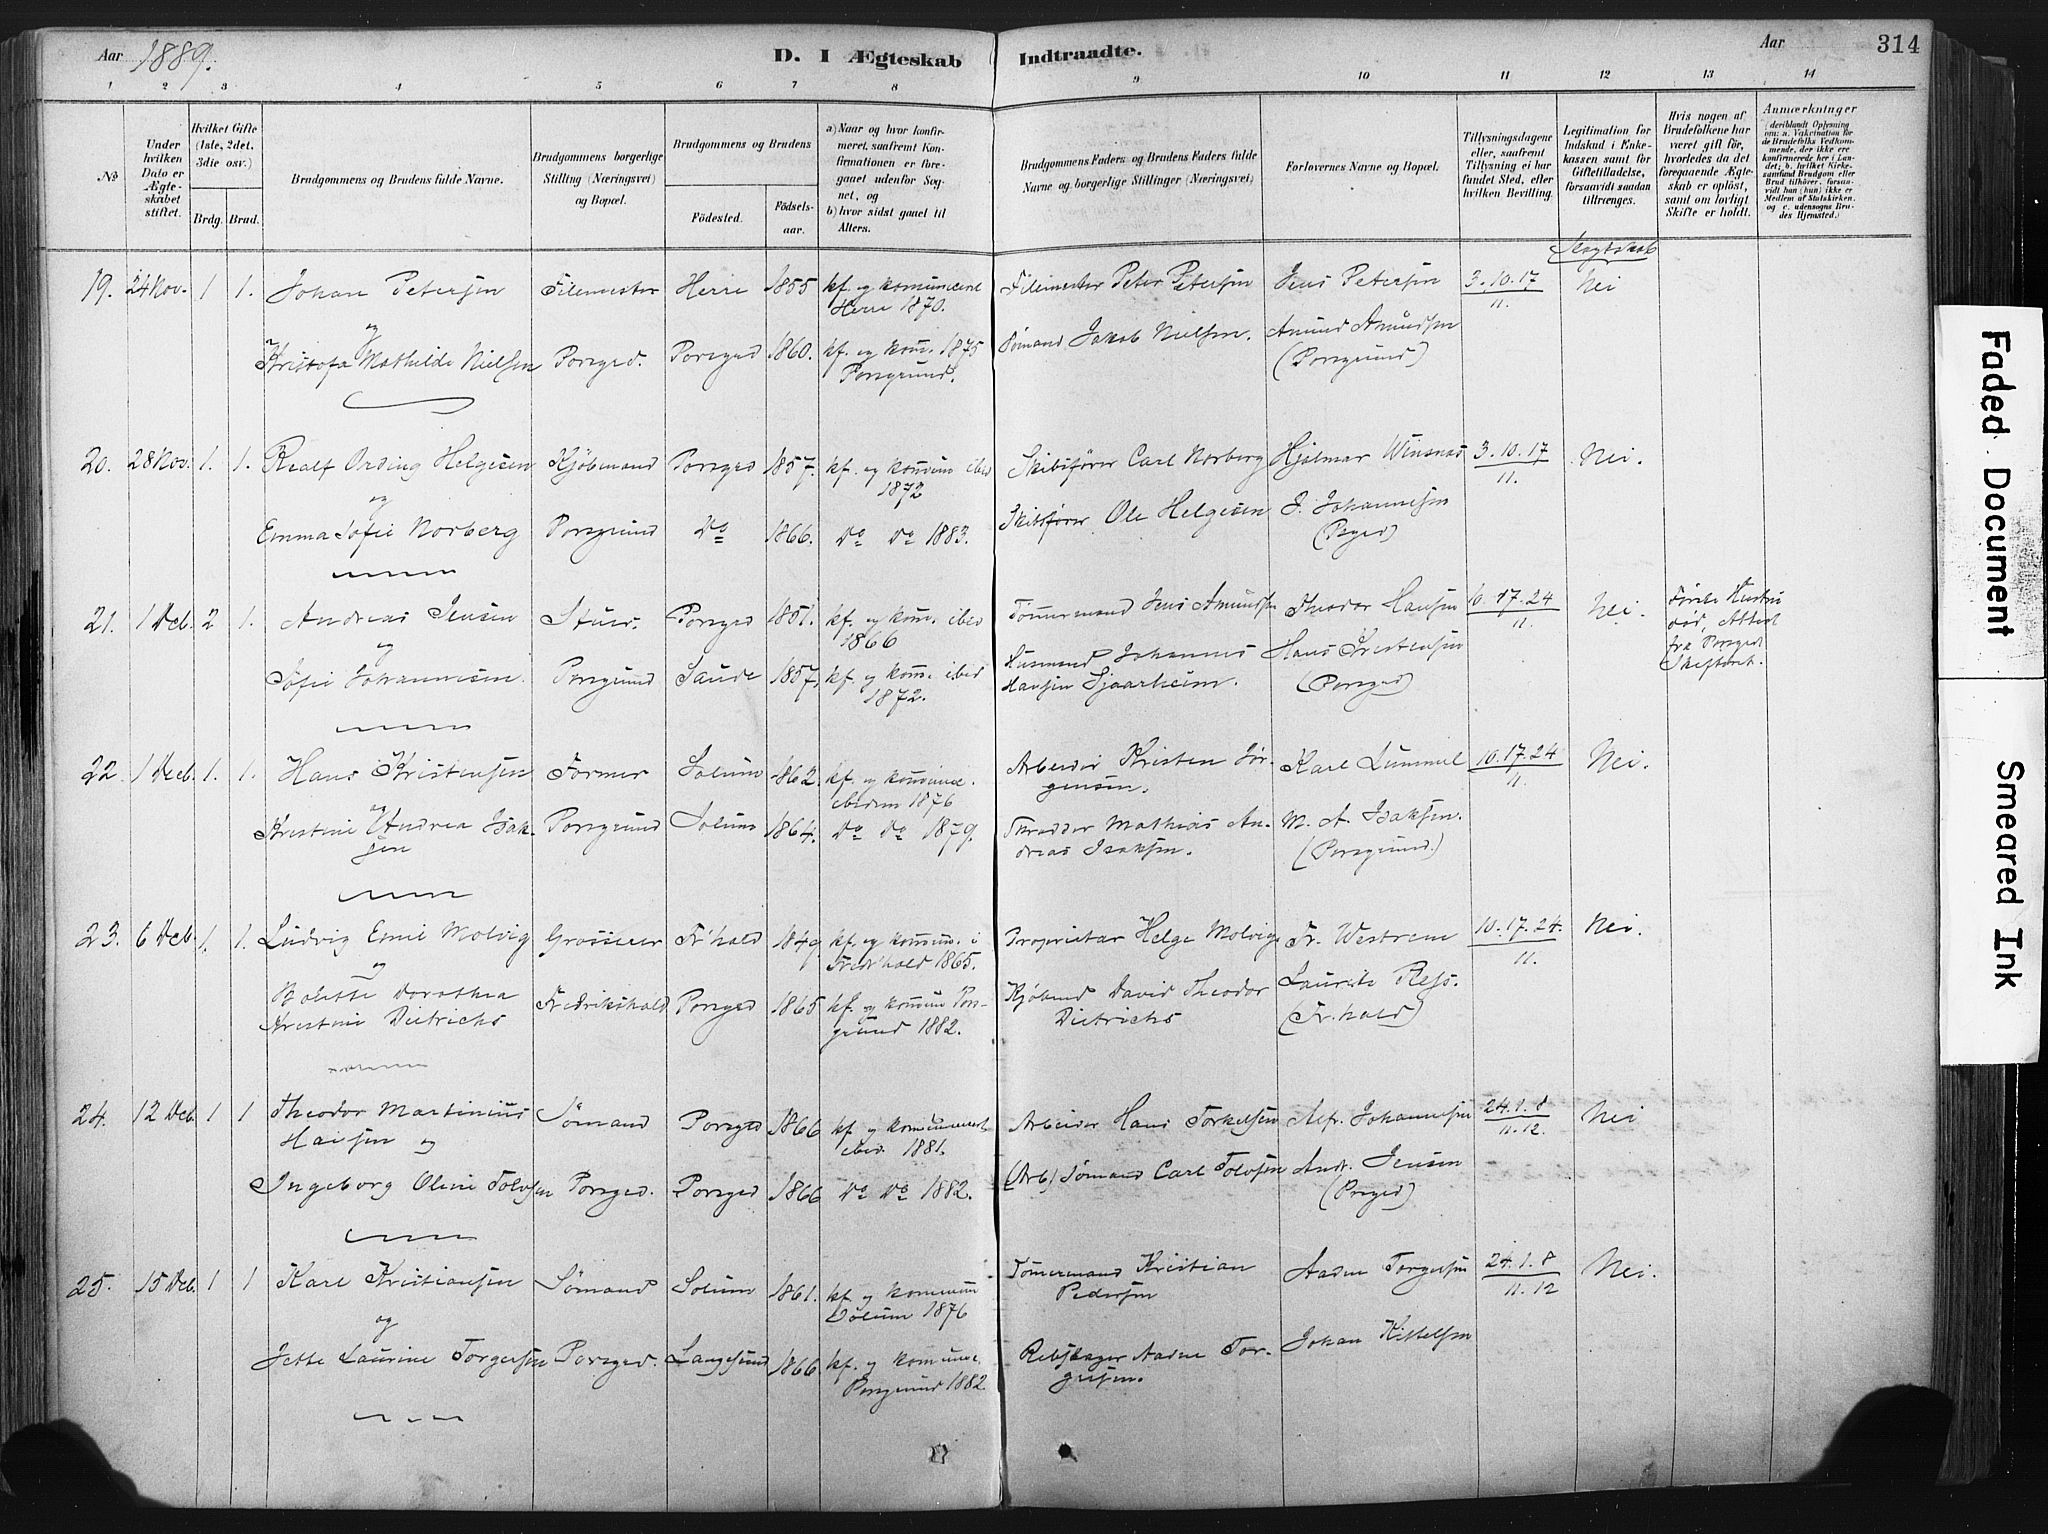 Aar 1889.
D. I Ægteskab Indtraadte.
Aar 314
1 2 3 4 5 6 7 8 9 10 11 12 13 14
№
Under hvilken Dato er Ægteskabet stiftet.
Hvilket Gifte (1ste, 2det, 3die osv.)
Brdg. Brud.
Brudgommens og Brudens fulde Navne.
Brudgommens borgerlige Stilling (Næringsvei) og Bopæl.
Brudgommens og Brudens
Fødested. Fødselsaar.
a) Naar og hvor konfirmeret, saafremt Konfirmationen er foregaaet udenfor Sognet, og
b) hvor sidst gaaet til Alters.
Brudgommens Faders og Brudens Faders fulde Navne og borgerlige Stillinger (Næringsvei)
Forlovernes Navne og Bopæl.
Tillysningsdagene eller, saafremt Tillysning ei har fundet Sted, efter hvilken Bevilling.
Legitimation for Indskud i Enkekassen samt for Giftetilladelse, forsaavidt saadan tiltrænges.
Hvis nogen af Brudefolkene har været gift før, hvorledes da det foregaaende Ægteskab er opløst, samt om lovligt Skifte er holdt.
Anmærkninger (deriblandt Oplysning om: a. Vakcination for de Brudefolks Vedkommende, der ikke ere konfirmerede her i Landet; b. hvilket Kirkesamfund Brudgom eller Brud tilhører, forsaavidt han (hun) ikke er Medlem af Statskirken, og c. udensogns Brudes Hjemsted.)
Slegtskab
19. 24 Nov. 1 1. Johan Petersen Filemester Herre 1855 kf. og kommuniceret Herre 1870. Filemester Peter Petersen Jens Petersen 3.10.17 11. Nei
og
Kristofa Mathilde Nielsen Porsgrd. Porsgrd 1860. kf. og kom. 1875 Porsgrund. Sømand Jakob Nielsen. Amund Amundsen (Porsgrund)
20. 28 Nov. 1. 1. Realf Ording Helgesen Kjøbmand Porsgrd 1857. kf. og kommun ibid 1872 Skibsfører Carl Norberg Hjalmar Winsnæs 3.10.17 11. Nei.
og
Emma Sofie Norberg Porsgrund Do 1866. Do Do 1883. Skibsfører Ole Helgesen J. Johannesen (Prsgrd)
21. 1 Deb. 2 1. Andreas Jensen Stuer. Porsgrd 1851. kf. og kom. ibid 1866 Tømmermand Jens Amundsen Theodor Hansen 10.17.24 11. Nei. Første Hustru død, Attest fra Porsgrd Skifteret.
og
Sofie Johannesen. Porsgrund Saude 1857. kf. og kom. ibid 1872. Husmand Johannes Hansen Sjaarheim. Hans Kristensen (Porsgrd)
22. 1 Deb. 1. 1. Hans Kristensen Former Solum 1862. kf. og kommunic. ibidem 1876 Arbeider Kristen Jørgensen. Karl Lummel 10.17.24 11. Nei.
og
Kristine Andrea Isaksen Porsgrund Solum 1864. Do Do 1879. Skrædder Mathias Andreas Isaksen. M. A. Isaksen. (Porsgrund.)
23. 6 Deb. 1. 1. Ludvig Emil Molvig Grosserer Fr'hald 1849 kf. og kommun. i Fred'hald 1865. Proprietær Helge Molvig Fr. Westrem 10.17.24. 11. Nei.
og
Bolette Dorothea Kristine Dietrichs Fredrikshald Porsgrd 1865 kf. og kommun Porsgrund 1882. Kjøbmd David Theodor Dietrichs Laurits Ross. (Fr.hald)
24. 12 Deb. 1 1 Theodor Martinius Hansen og Sømand Porsgrd 1866 kf og kommunicert ibid. 1881. Arbeider Hans Torkelsen Alfr. Johannesen 24.1.8 11.12. Nei
Ingeborg Oline Tolvsen Porsgrd. Porsgrd 1866 Do Do 1882. (Arb) Sømand Carl Tolvsen Andr. Jensen (Prsgrd)
25. 15 Deb. 1 1 Karl Kristiansen Sømand Solum 1861. kf og kommun Solum 1876 Tømmermand Kristian Pedersen Aaden Torgersen 24.1.8 11.12 Nei.
og
Jette Laurine Torgersen Porsgrd. Langesund 1866. kf. og kommunic. Porsgrund 1882. Rebslager Aadne Torgersen. Johan Kittelsen
Faded Document
Smeared Ink